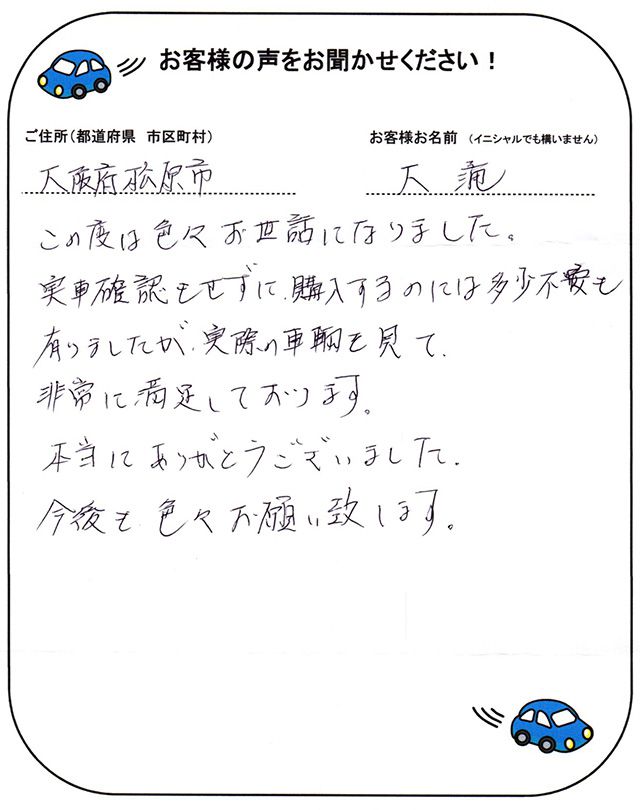 お客様の声をお聞かせください！
ご住所（都道府県　市区町村）
お客様お名前　（イニシャルでも構いません）
大阪府松原市
大滝
この度は色々お世話になりました。
実車確認もせずに、購入するのには多少不安も
有りましたが、実際の車輌を見て、
非常に満足しております。
本当にありがとうございました。
今後も色々お願い致します。